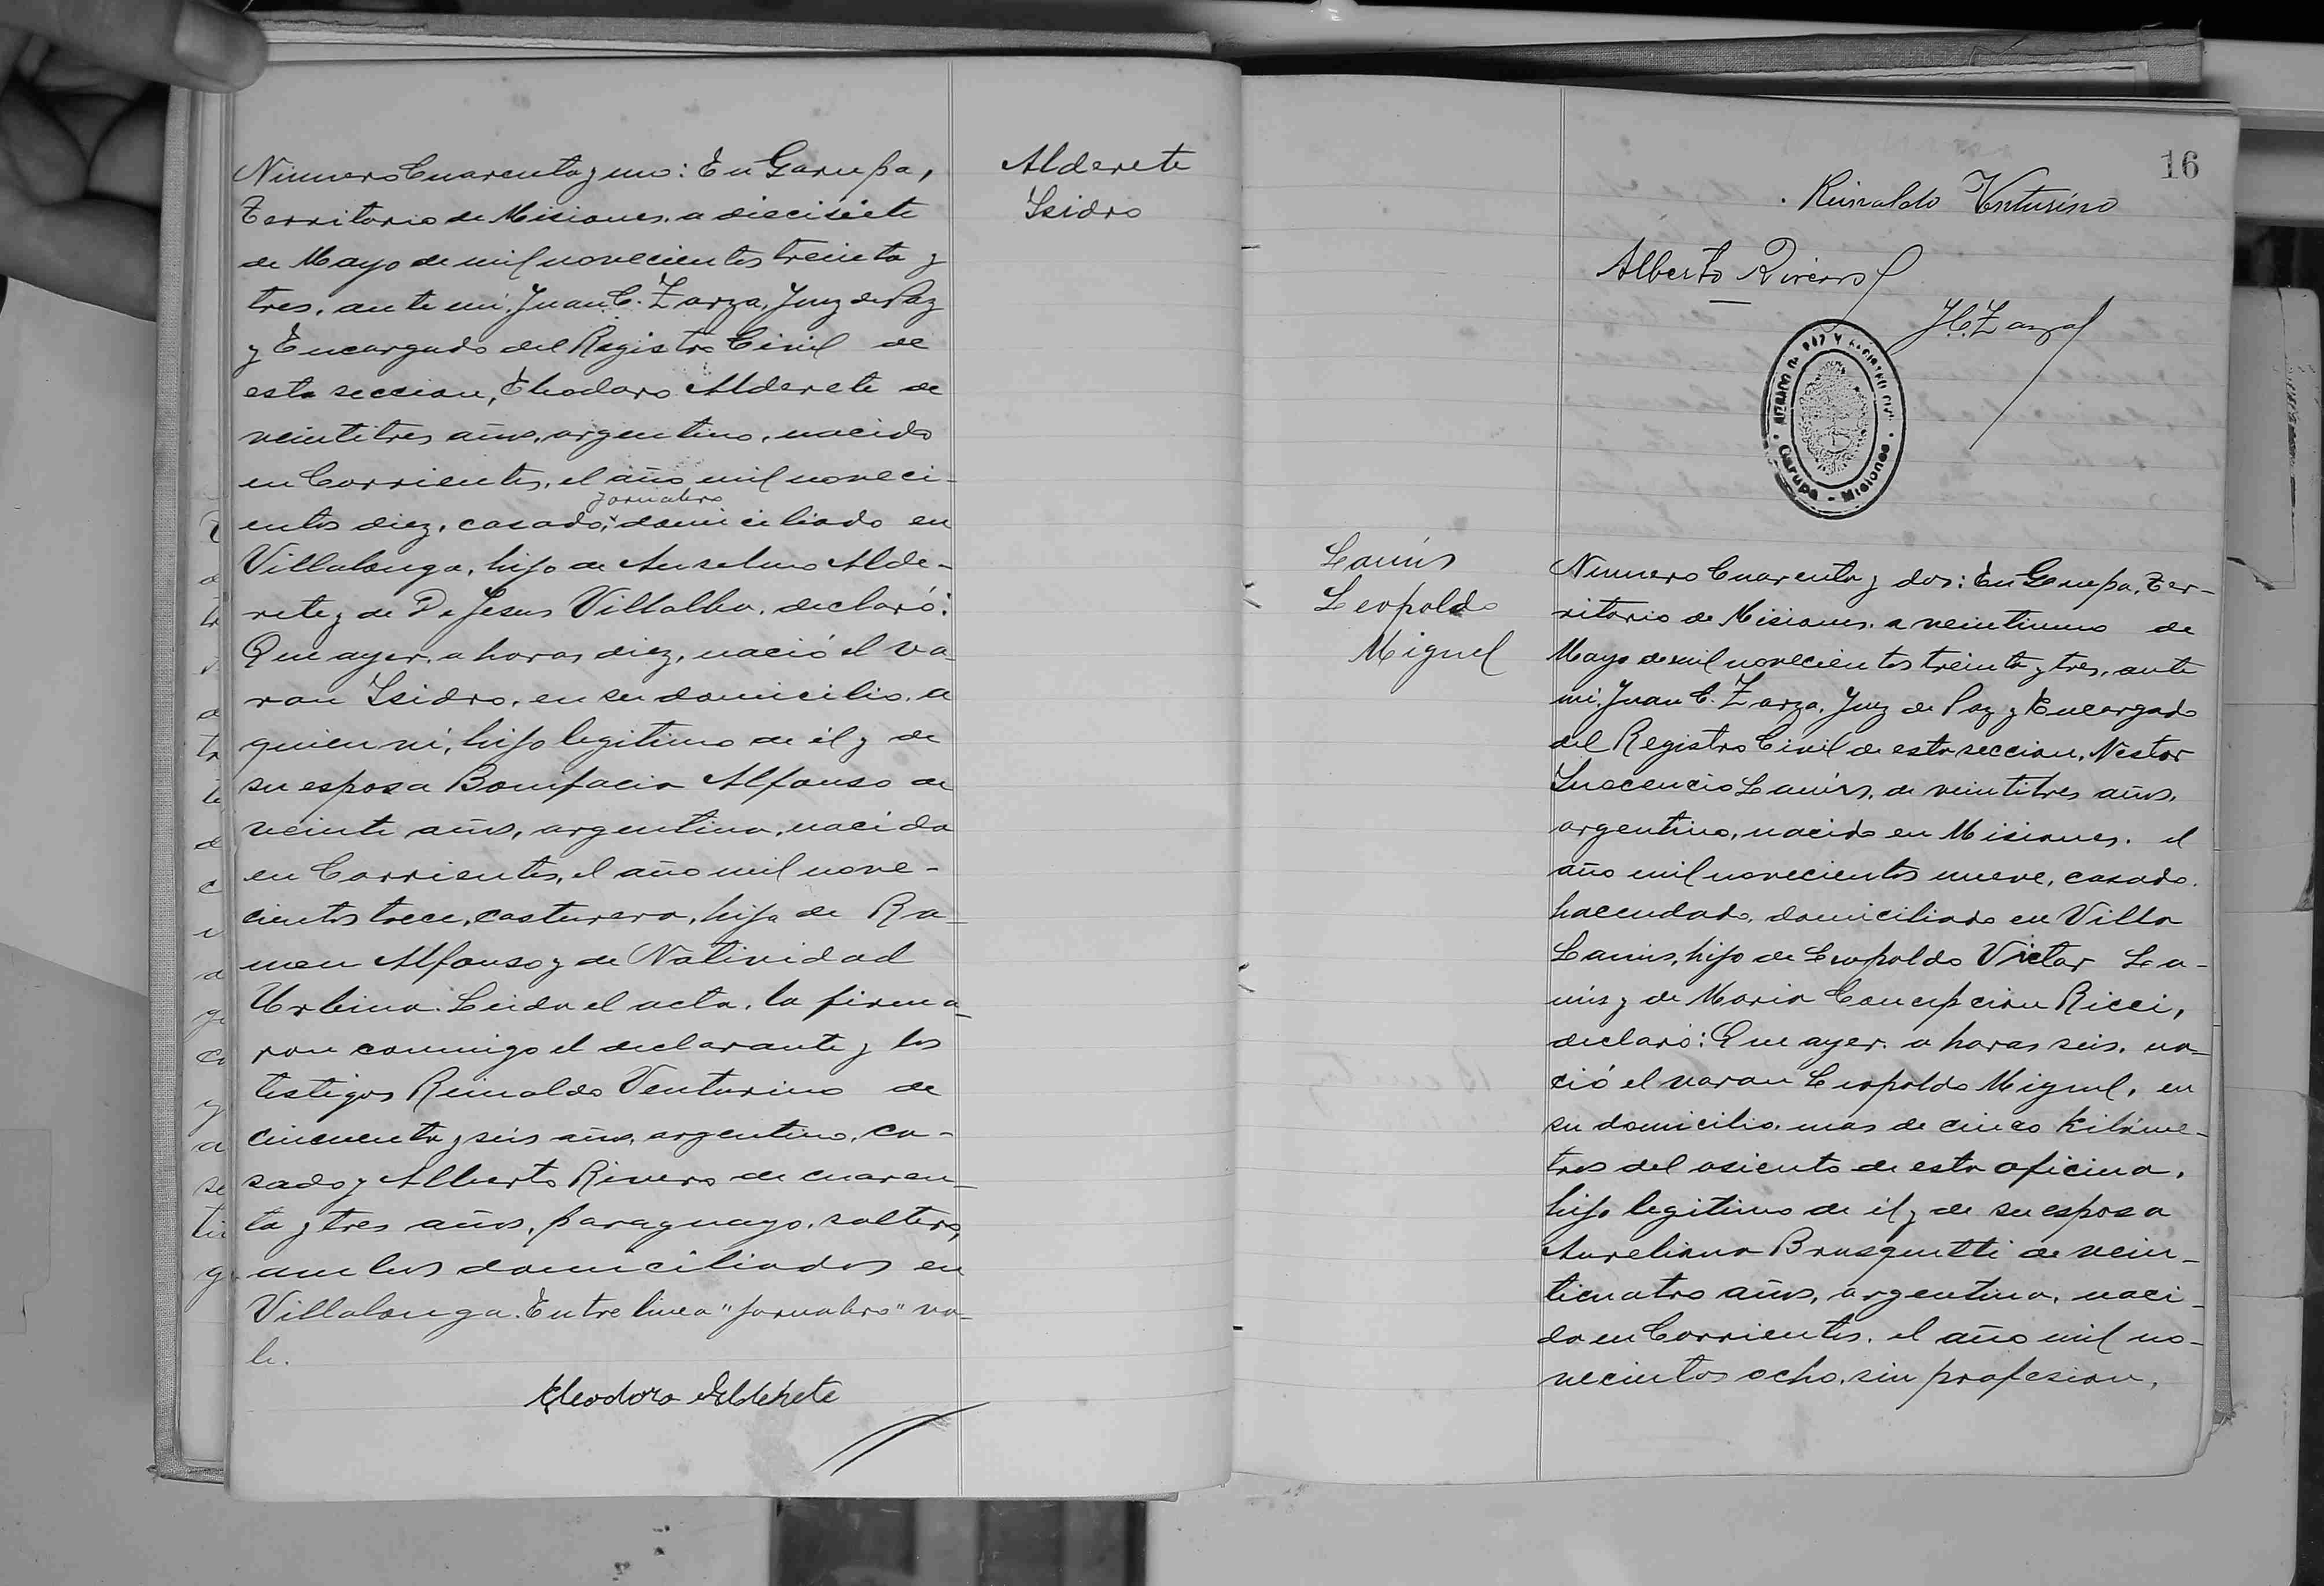 Alderete
Isidro
Número Cuarenta y uno: En Garupa,
Territorio de Misiones, a diecisiete
de Mayo de mil novecientos treinta y
tres, ante mi, Juan C. Zarza, Juez de Paz
y Encargado del Registro Civil de
esta seccion, Eleodoro Alderete de
veintitres años, argentino, nacido
en Corrientes, el año mil noveci-
jornalero
entos diez, casado, domiciliado en
Villalonga, hijo de Anselmo Alde-
rete y de De Jesus Villalba, declaró:
Que ayer, a horas diez, nació el va-
ron Isidro, en su domicilio, a
quien ví, hijo legitimo de él y de
su esposa Bonifacia Alfonso de
veinte años, argentina, nacida
en Corrientes, el año mil nove-
cientos trece, costurera, hija de Ra-
mon Alfonso y de Natividad
Urbina. Leida el acta, la firma-
ron conmigo el declarante y los
testigos Reinaldo Venturino de
cincuenta y seis años, argentino, ca-
sado y Alberto Rivero de cuaren-
ta y tres años, paraguayo, soltero,
ambos domiciliados en
Villalonga. Entre linea "jornalero" va-
le.
Eleodoro Alderete
16
Reinaldo Venturino
Alberto Rivero
J.C. Zarza
JUZGADO DE PAZ Y REGISTRO CIVIL
Garupá - Misiones
Lanús
Leopoldo
Miguel
Número Cuarenta y dos: En Garupa, Ter-
ritorio de Misiones, a veintiuno de
Mayo de mil novecientos treinta y tres, ante
mi, Juan C. Zarza, Juez de Paz y Encargado
del Registro Civil de esta seccion, Nestor
Inocencio Lanús, de veintitres años,
argentino, nacido en Misiones, el
año mil novecientos nueve, casado,
hacendado, domiciliado en Villa
Lanus, hijo de Leopoldo Victor La-
nús y de Maria Concepcion Ricci,
declaró: Que ayer, a horas seis, na-
ció el varon Leopoldo Miguel, en
su domicilio, mas de cinco kilome-
tros del asiento de esta oficina,
hijo legitimo de él y de su esposa
Aureliana Brusquetti de vein-
ticuatro años, argentina, naci-
da en Corrientes, el año mil no-
vecientos ocho, sin profesion,